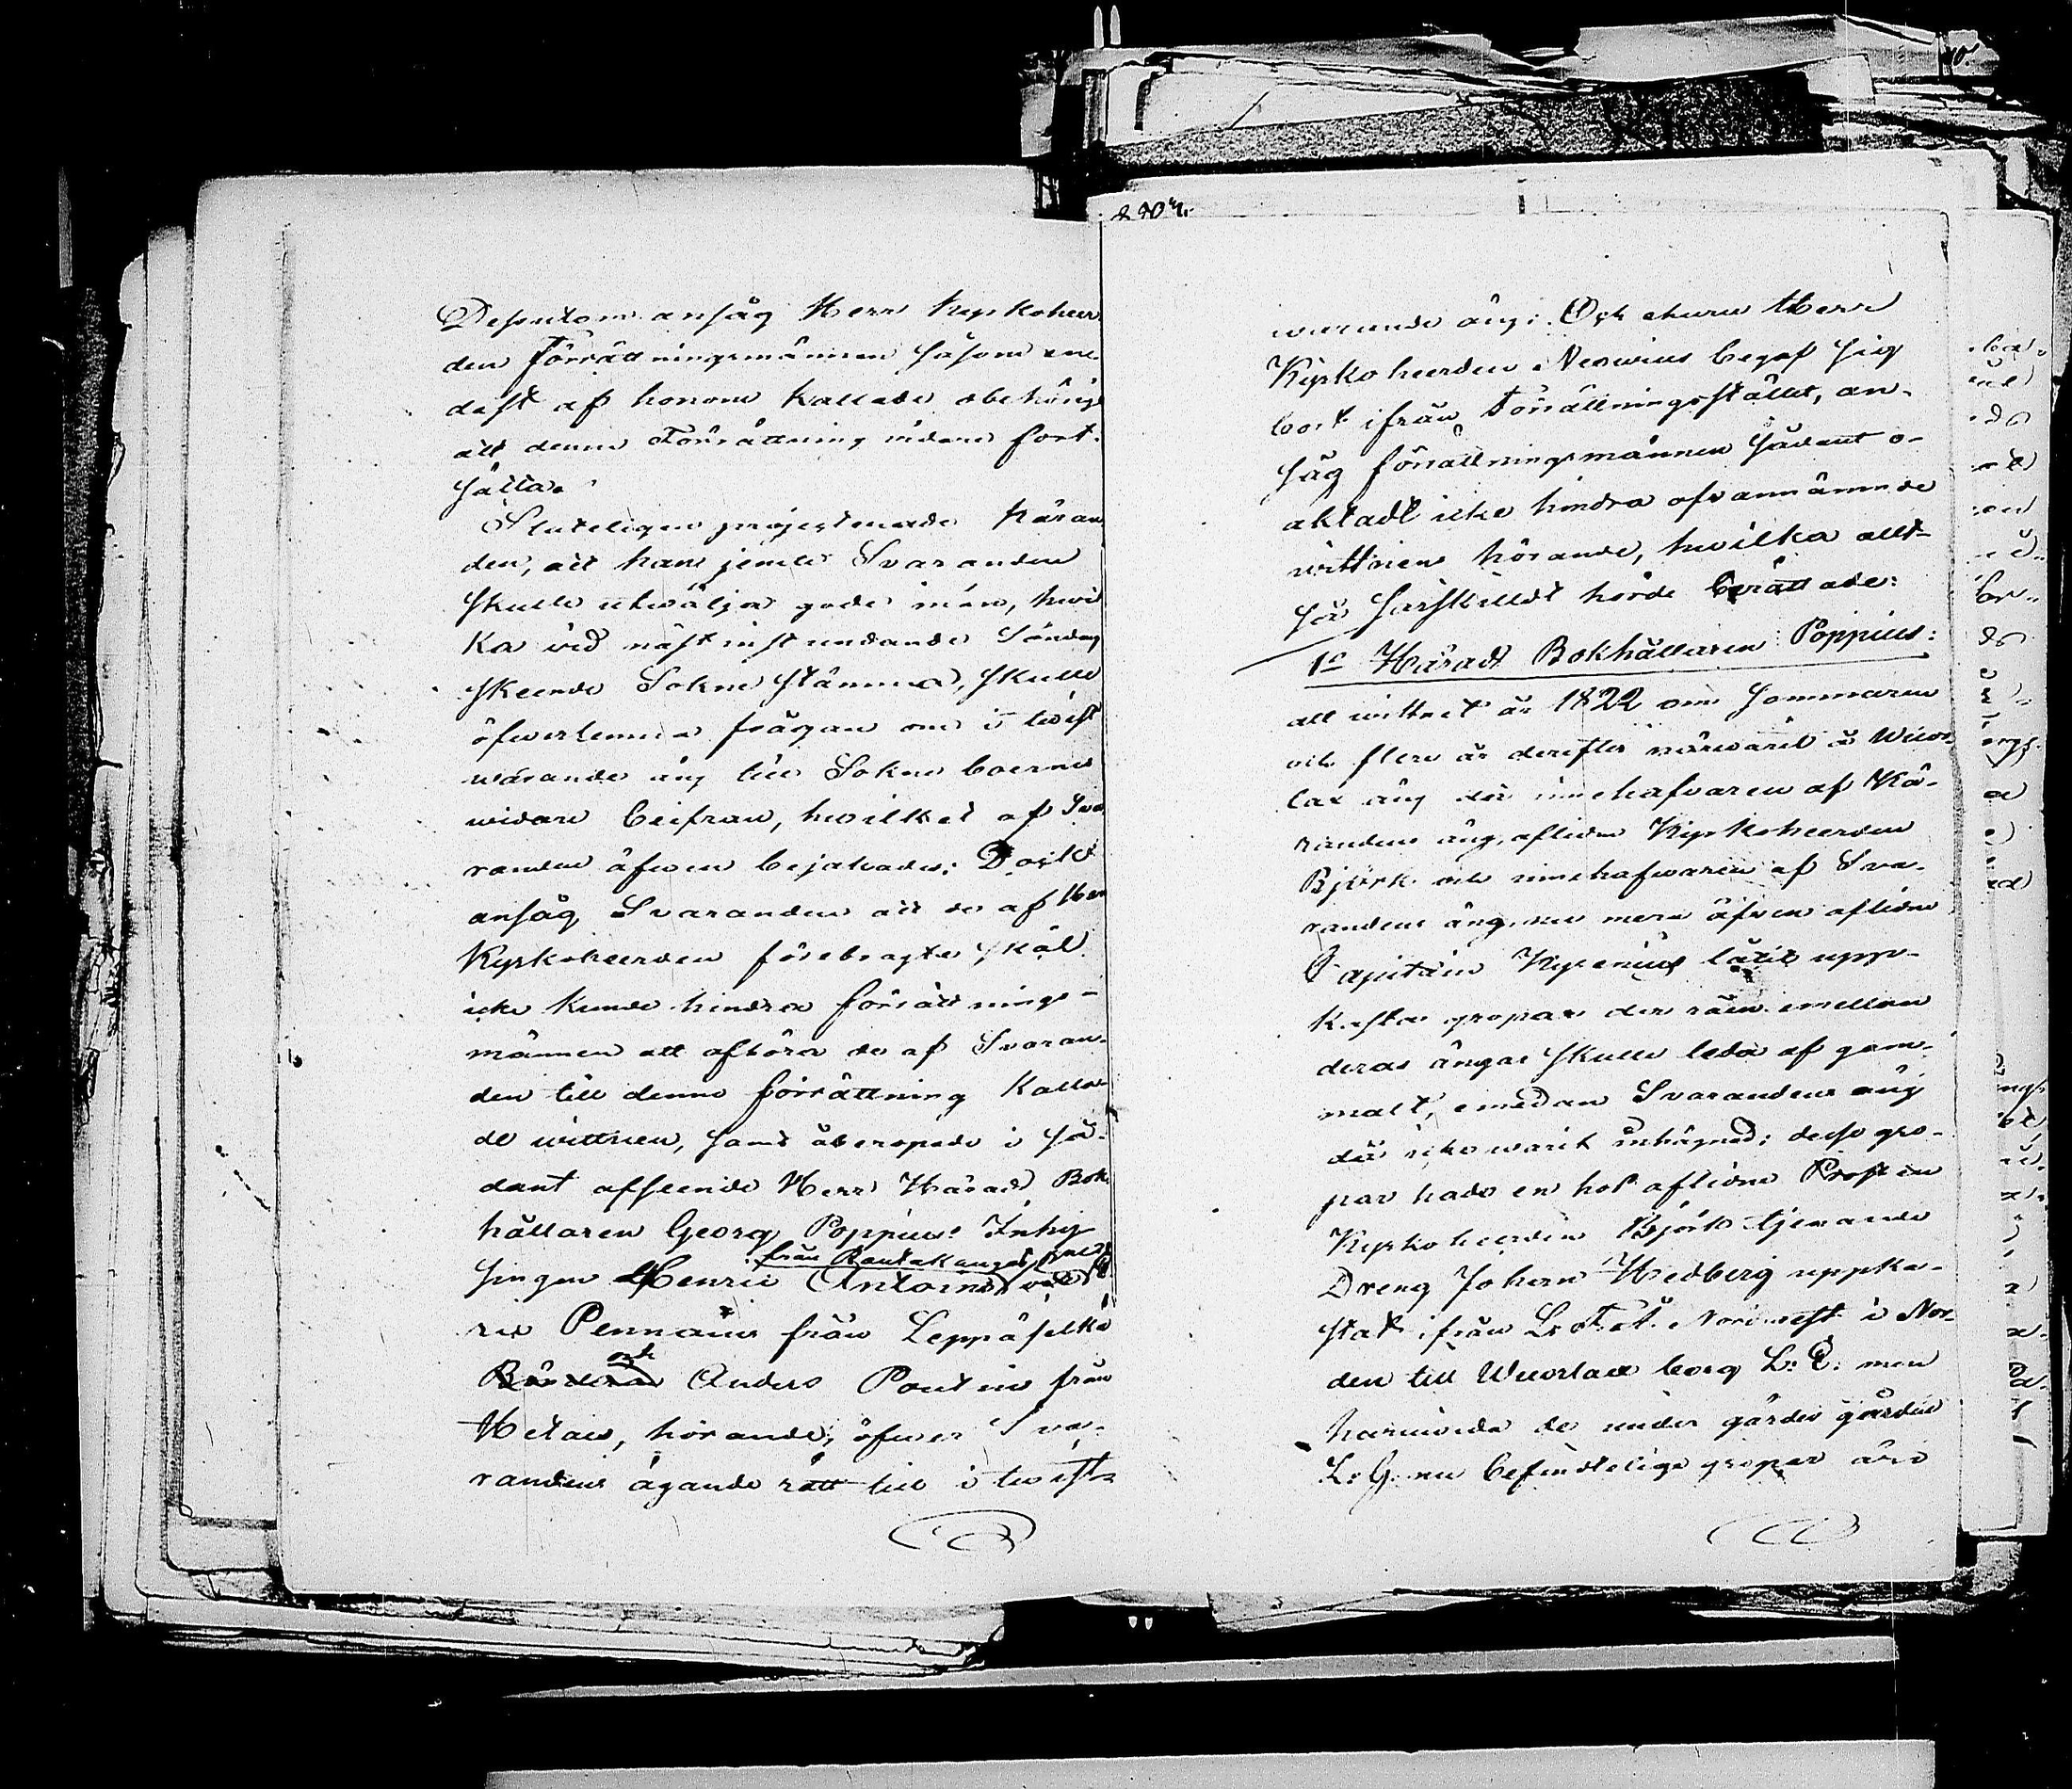 Dessutom ansåg Herr Kyrkoheer-
den Förrättningsmännen såsom en-
dast af honom kallade obehörige
att denna Förrättning vidare fort-
sätta.
Sluteligen projecterade Käran-
den, att han jemte Svaranden
skulle utwälja gode män, hwil
ka vid näst instundande Söndag
skeende Sokne stämma, skulle
öfwerlemna frågan om i twist
warande äng till Sokne boerne
widare beifran, hwilket af Sva
randen äfwen bejakades; Dock
ansåg Svaranden att de af Herr
Kyrkoheerden förebragte skäl
icke kunde hindra förrättnings-
männen att afhöra de af Svaran-
den till denna förrättning kalla-
de wittnen, samt åberopade i så-
dant afseende Herr Härads Bok-
hållaren Georg Poppius Inhy-
från Rautakangas
singen Henric Antoinen
ric Pennain från Leppäselkä
och
Bonden Anders Poutin från
Hetais, hörande, öfwer Sva-
randens ägande rätt till i twist-
warande äng; Och ehuru Herr
Kyrkoheerden Neovius begaf sig
bort ifrån Förrättningsstället, an-
såg förrättningsmännen sådant o-
aktadt icke hindra ofvannämnde
wittnen hörande, hwilka allt-
så särskilldt hörde berättade:
1o Härads Bokhållaren Poppius:
att wittnet år 1822 om sommaren
och flere år derefter närwarit å Wuor
lax äng då innehafvaren af Kä-
randens äng, aflidne Kyrkoheerden
Björk och innehafwaren af Sva-
randens äng, nu mera äfven aflidne
Capitain Kyrenius låtit upp-
kasta gropar der råen emellan
deras ängar skulle leda af gam-
malt, emedan Svarandens äng
då icke warit inhägnad; desse gro-
par hade en hos aflidne Prosten
Kyrkoheerden Björk tjenande
Dreng Johan Hedberg uppka-
stat ifrån Lr A. Norrwest i Nor-
den till Wuorlax berg L: E: men
harmonde de under gärdes gården
L: G. nu befindtelige gropar äro